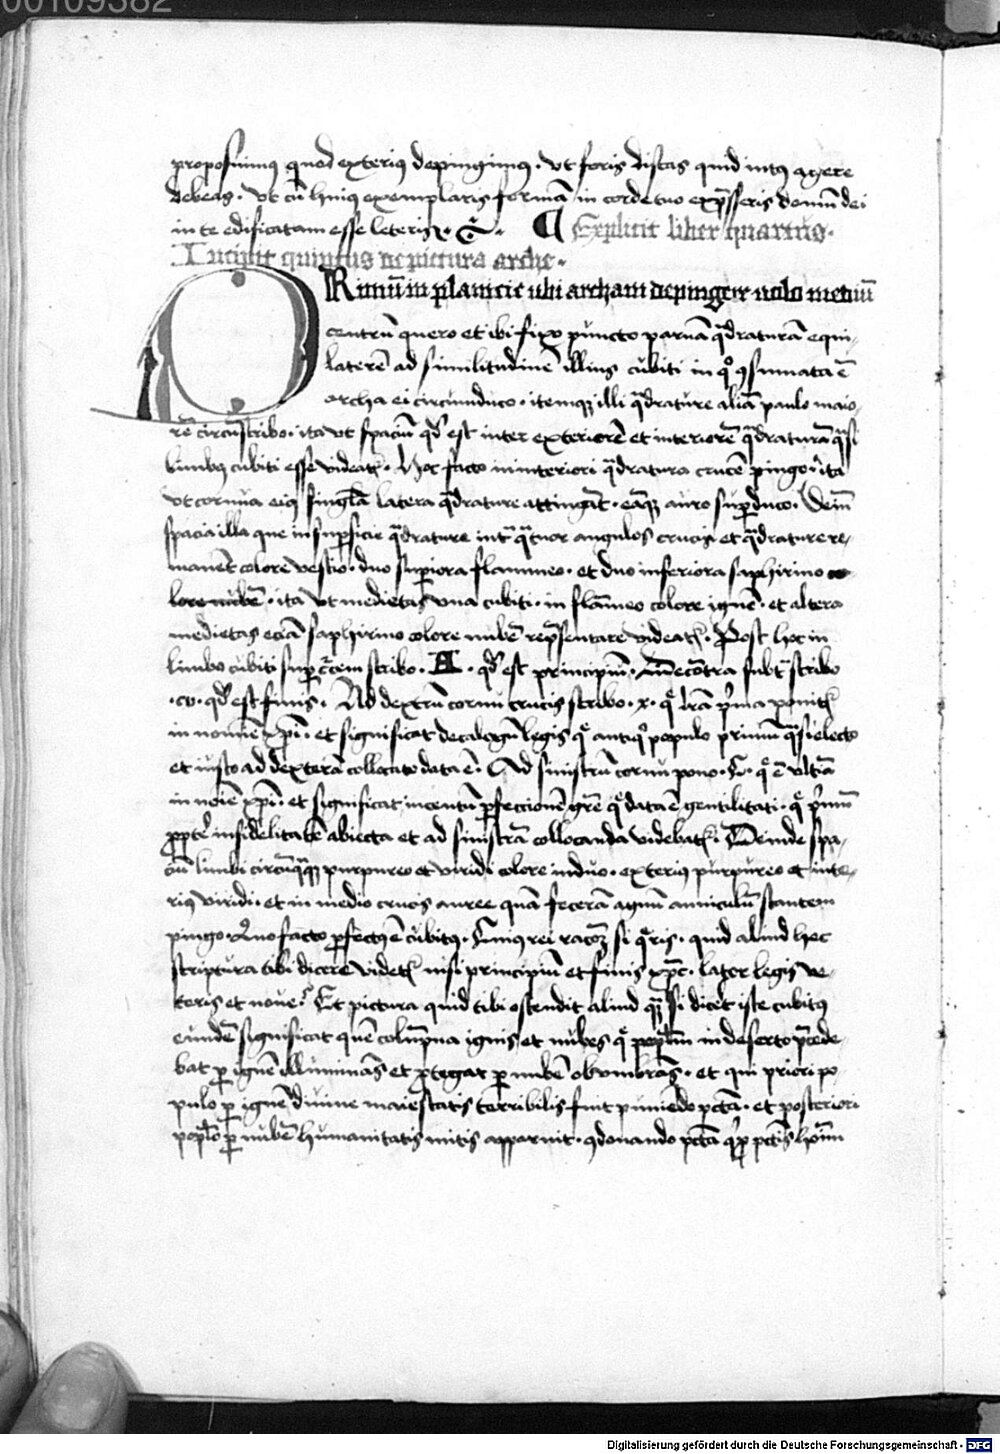 00109382
proposuimus quod exterius depingimus. Ut foris discas quid intus agere
debeas. Ut cu̅ huius exemplaris forma̅ in corde tuo exp̅sseris domu̅ dei
in te edificatam esse leteris
¶ Explicit liber quartus.
Incipit quintus de pictura arche.
PRimu̅ in planicie ubi archam depingere uolo mediu̅
centru̅ quero et ibi fixo puncto parua̅ q̅draturā equi-
latere̅ ad similitudine̅ illius cubiti in q° ꝯsumata e̅
archa ei circumduco. itemqꝫ illi q̅drature alia̅ paulo maio-
re̅ circu̅scribo. ita ut spaciu̅ qd̅ est inter exteriore̅ et interiore̅ q̅dratura̅ q̅si
limbꝰ cubiti esse videat̅. Hoc facto in interiori q̅dratura cruce̅ pingo. ita
ut cornua eiꝰ singl̅a latera q̅drature attinga̅t. ea̅qꝫ auro sup̅duco. Dein̅
spacia illa que in sup̅ficie q̅drature int̅ q̅tuor angulos crucis et q̅drature re-
mane̅t colore vestio. duo sup̅iora flammeo. et duo inferiora saphirino co-
lore nube̅. ita ut medietas una cubiti. in fla̅meo colore igne̅. et altera
medietas ecia̅ saphirino colore nube̅ rep̅sentare videat̅. Post hoc in
limbo cubiti sup̅ c̅cem scribo. A. qd̅ est principiu̅. eco̅tra subt̅ scribo
.ω. qd̅ est finis. Ad dextru̅ cornu crucis scribo. x. q̅ l̅ra p̅ma ponit̅
in nomi̅e xp̅i. et significat decalogu̅ legis q̅ antiq° populo primu̅ q̅si electo
et iusto ad dextera̅ collocato data e̅. Ad sinistru̅ cornu pono. C. q̅ e̅ ultia̅
in noi̅e xp̅i. et significat p̅feccione̅ gr̅e q̅ data e̅ gentilitati. q̅ p̅mu̅
ꝓpt̅ infidelitate̅ abiecta et ad sinistra̅ collocanda videbat̅. Deinde spa-
ciu̅ limbi purpureo et viridi colore induo. exterius purpureo et inte-
rius viridi. et in medio crucis auree qua̅ fecera̅ agnu̅ anniculu̅ stantem
pingo. Quo facto p̅fectꝰ e̅ cubitꝰ. Cuius rei si q̅ris. quid aliud hec
scriptura tibi dicere videt̅ nisi principiu̅ et finis xp̅c. lator legis ve-
teris et noue. Et pictura quid tibi ostendit aliud qꝫ si dicet̅ iste cubitꝰ
eunde̅ significat que̅ colu̅pna ignis et nubes q̅ popl̅m in deserto p̅cede-
bat p̅ igne̅ illumina̅s et ꝓtegat p̅ nube̅ obumbra̅s. et qui priori po-
pulo p̅ igne̅ diuine maiestatis terribilis fuit puniendo pcc̅ta. et posteriori
popl̅o p̅ nube̅ humanitatis mitis apparuit. ꝯdonando pcc̅ta
Digitalisierung gefördert durch die Deutsche Forschungsgemeinschaft - DFG